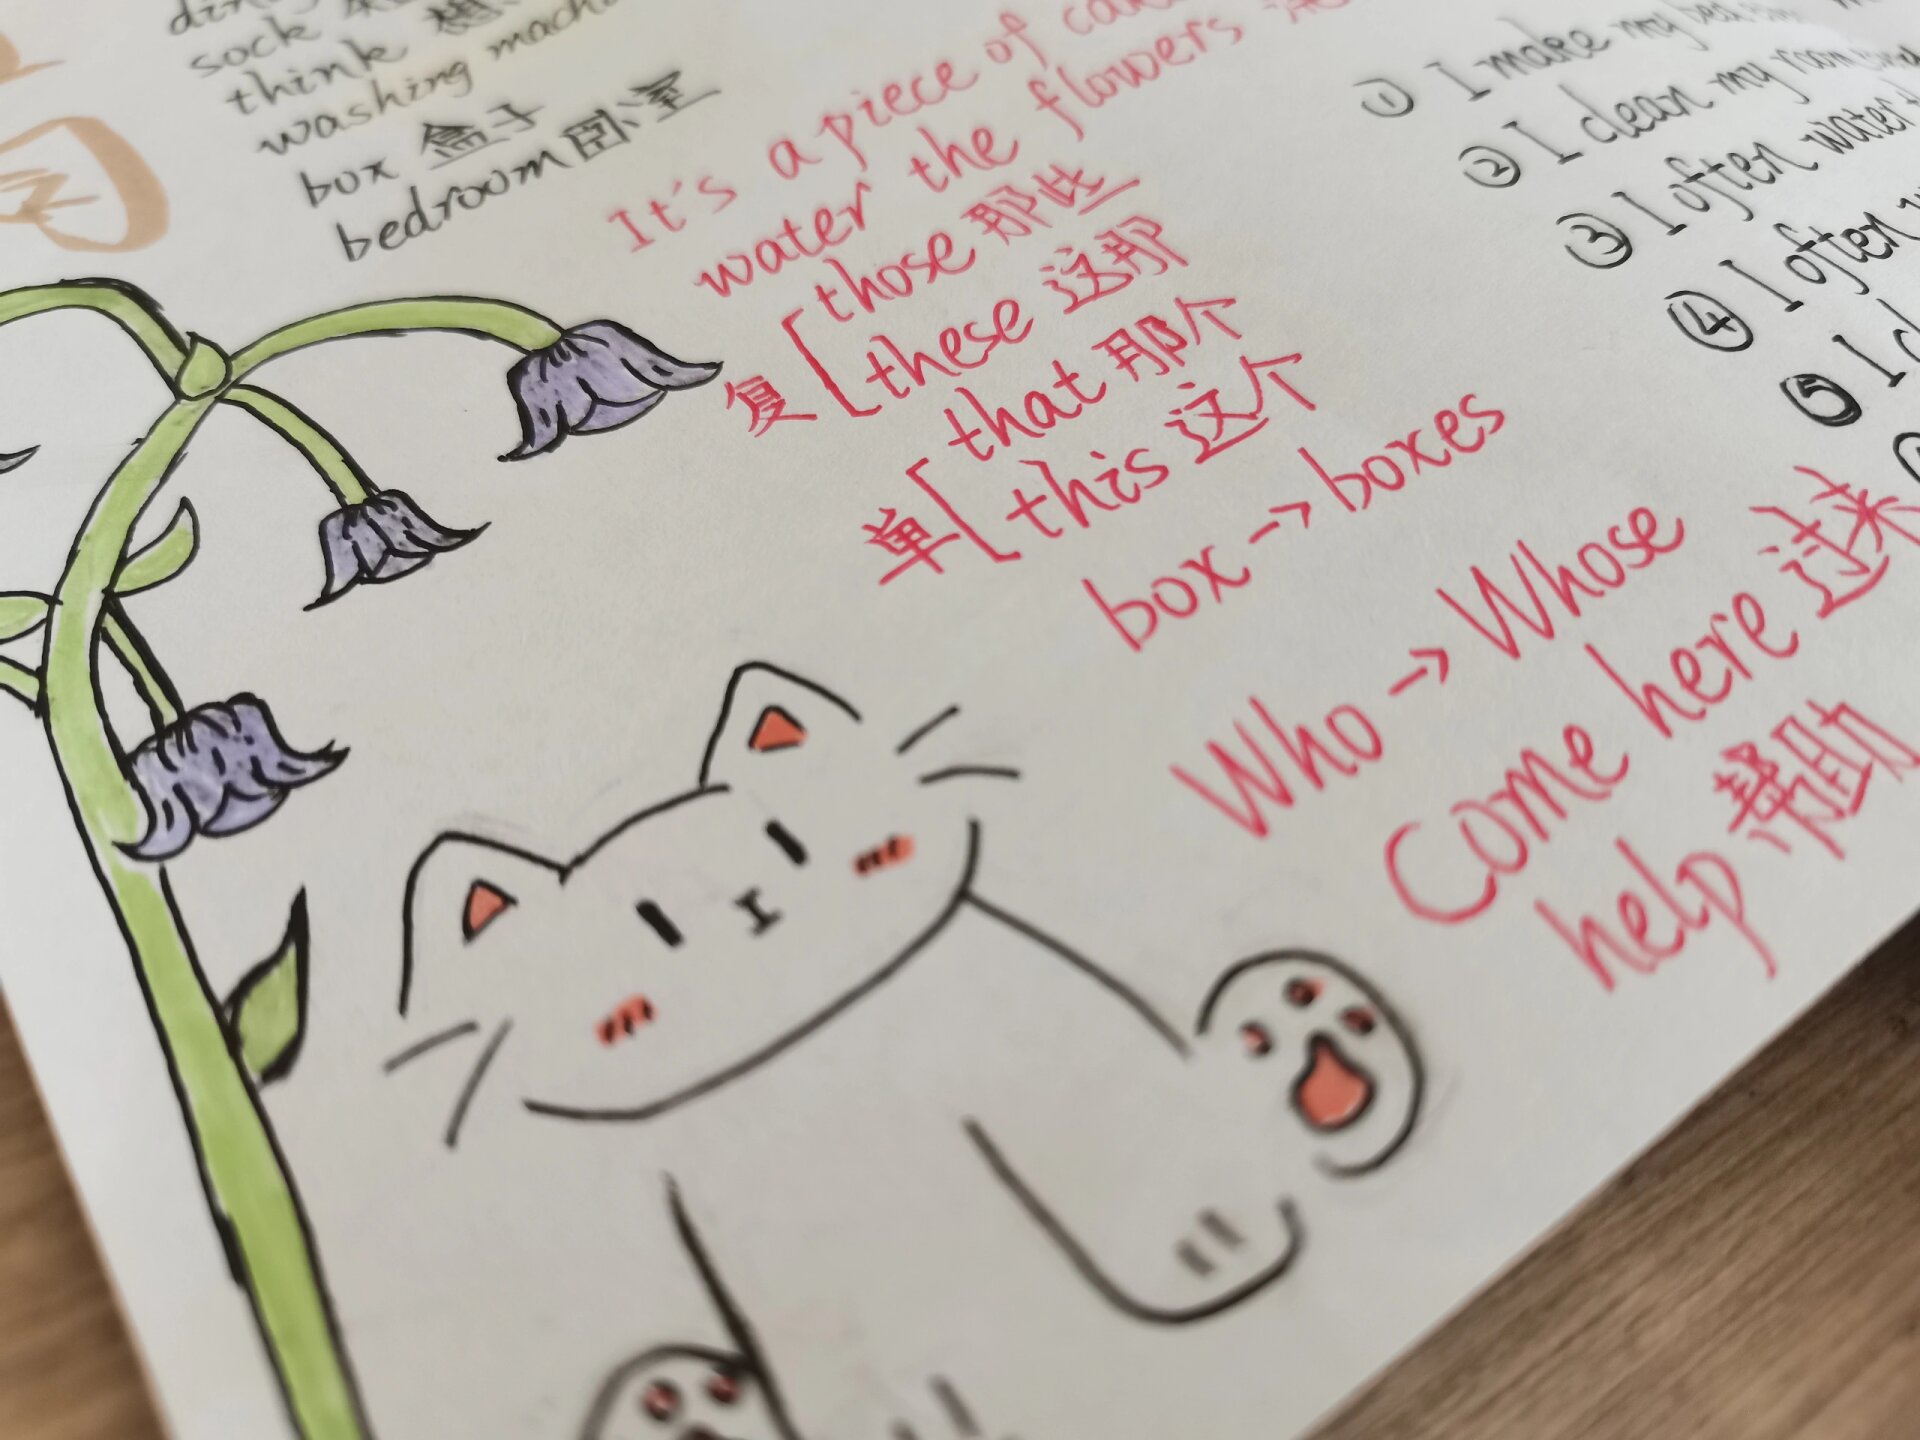 sock
think 想
washing
box 盒子
bedroom 卧室
It's a piece of
water the flowers
复 [ those 那些
these 这那
单 [ that 那个
this 这个
box → boxes
Who → Whose
Come here 过来
help 帮助
① I make my bed
② I clean my room
③ I often water
④ I often
⑤ I